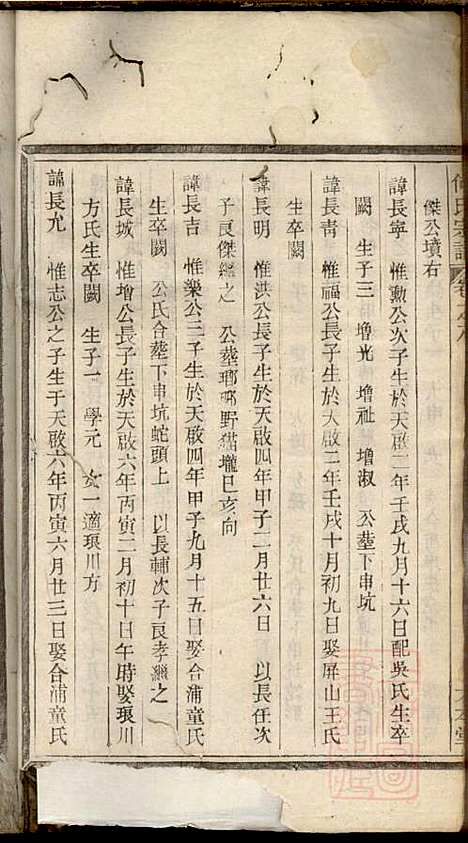 傑公墳右
諱長寧　惟勳公次子生於天啟二年壬戌九月十六日配吳氏生卒
闕　生子三　增光　增祉　增淑　公葬下串坑
諱長青　惟福公長子生於天啟二年壬戌十月初九日娶屏山王氏
生卒闕
諱長明　惟洪公長子生於天啟四年甲子二月廿六日　以長任次
子良傑繼之　公葬瑯瑘野猫壠巳亥向
諱長吉　惟樂公三子生於天啟四年甲子九月十五日娶合浦童氏
生卒闕　公氏合葬下串坑蛇頭上　以長輔次子良孝繼之
諱長城　惟增公長子生於天啟六年丙寅二月初十日午時娶琅川
方氏生卒闕　生子一　學元　女一適琅川方
諱長允　惟志公之子生于天啟六年丙寅六月廿三日娶合浦童氏